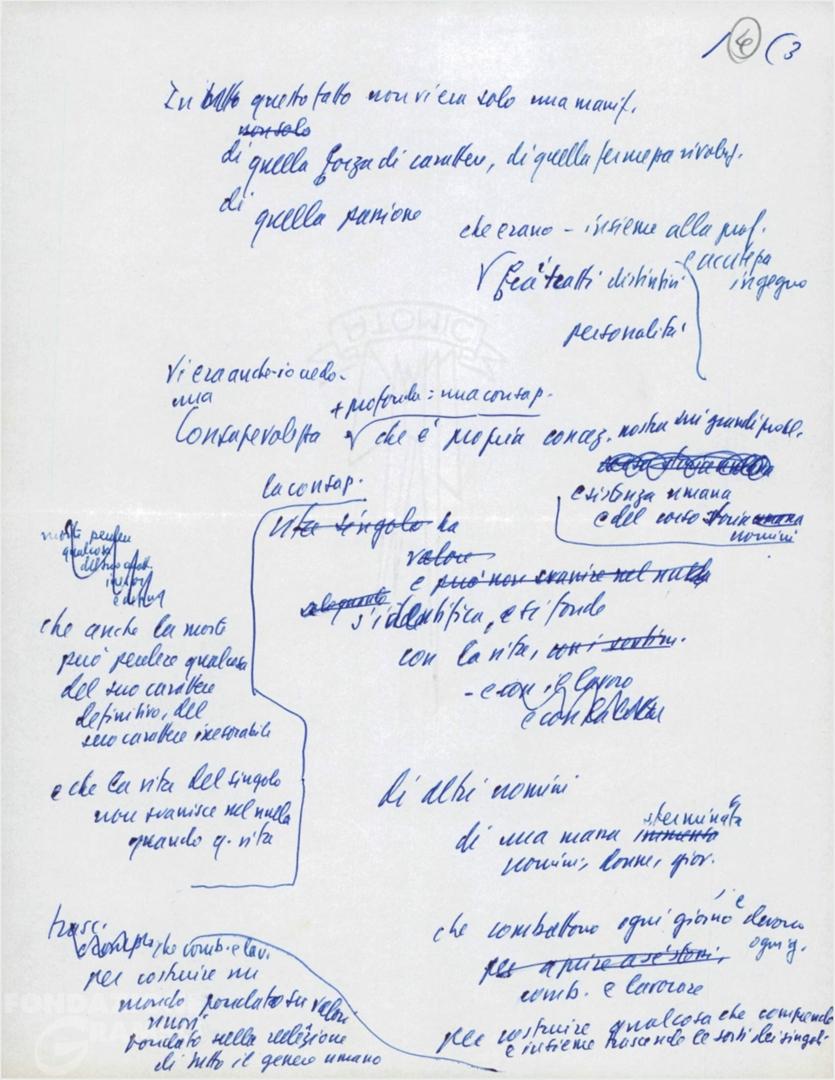 1 4 (3
In tutto questo fatto non vi era solo una manif.
non solo
di quella forza di carattere, di quella fermezza rivoluz.
di quella passione
che erano - insieme alla prof.
e acutezza
ingegno
tratti distintivi
personalità
Vi era anche - io credo -
una
+ profonda: una consap.
Consapevolezza che è propria concez. nostra sui grandi probl.
esistenza umana
e del corso storia umana
uomini
la consap.
vita singolo ha
valore
e può non svanire nel nulla
s'identifica, e si fonde
con la vita,
- e con il lavoro
e con la lotta
morte perdere
qualcosa
del suo caratt.
che anche la morte
può perdere qualcosa
del suo carattere
definitivo, del
suo carattere inesorabile
e che la vita del singolo
non svanisce nel nulla
quando q. vita
di altri uomini
di una massa sterminata
immensa
uomini, donne, giov.
che combattono ogni giorno e devono
ogni g.
per aprire a se stessi,
comb. e lavorare
per costruire qualcosa che comprende
e insieme trascende le sorti dei singoli
trasc.
che comb. e lav.
per costruire un
mondo fondato su valori
nuovi
fondato sulla redenzione
di tutto il genere umano
ATOMIC
FONDAZIONE
GRAMSCI